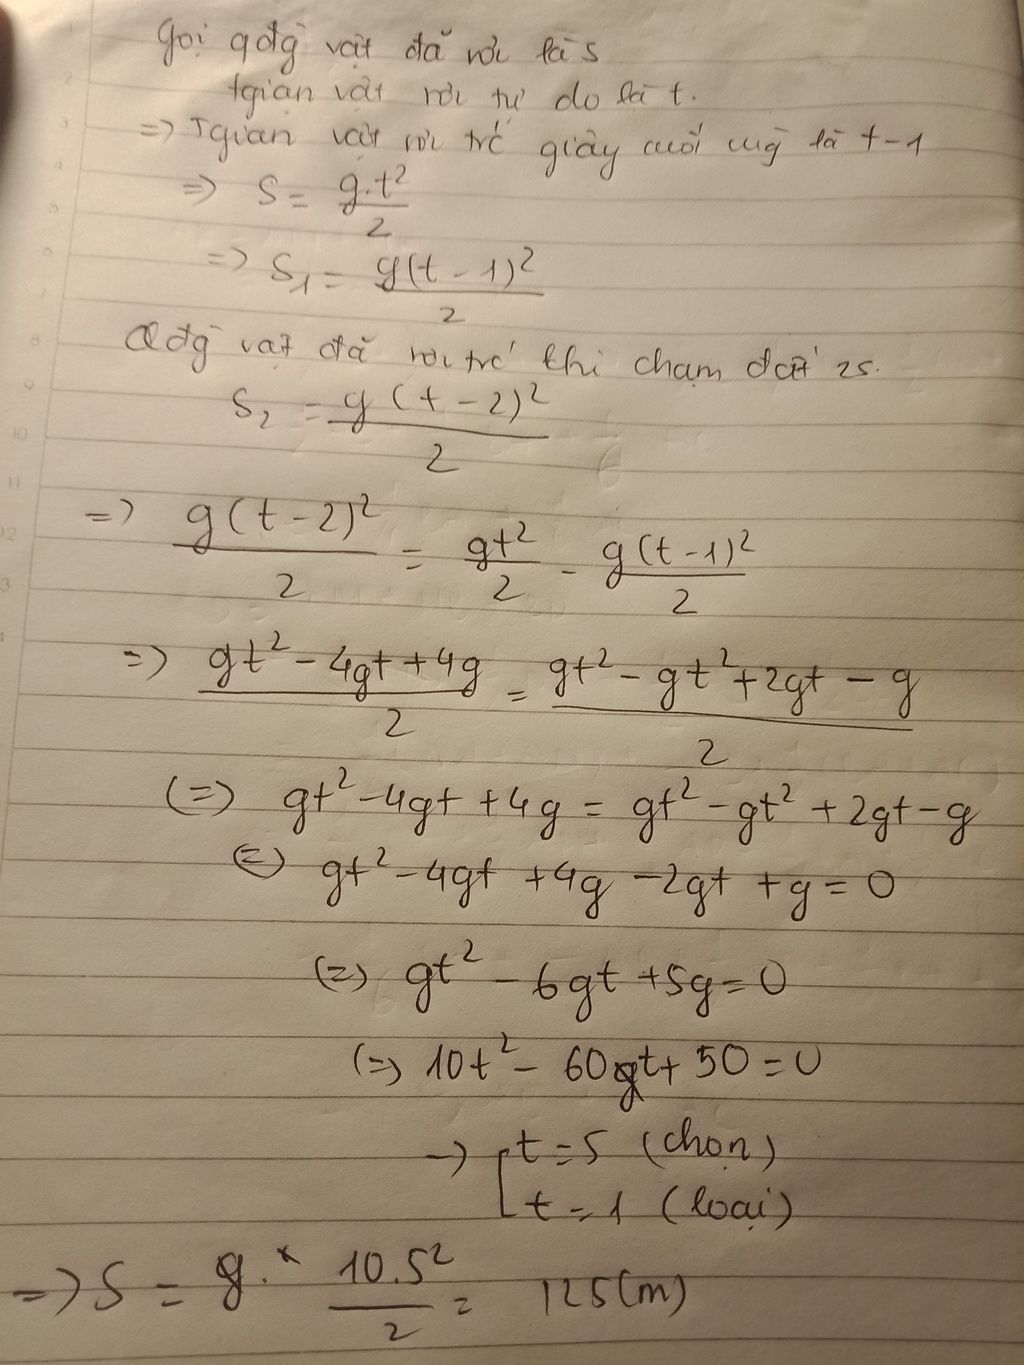 Gọi qđg̀ vật đã rơi là s
tgian vật rơi tự do là t.
=> Tgian vật rơi trc giây cuối cùg là t-1
=> S = g.t²/2
=> S₁ = g(t-1)²/2
Qđg̀ vật đã rơi trc khi chạm đất 2s.
S₂ = g(t-2)²/2
=> g(t-2)²/2 = gt²/2 - g(t-1)²/2
=> (gt² - 4gt + 4g)/2 = (gt² - gt² + 2gt - g)/2
(=) gt² - 4gt + 4g = gt² - gt² + 2gt - g
(=) gt² - 4gt + 4g - 2gt + g = 0
(=) gt² - 6gt + 5g = 0
(=) 10t² - 60t + 50 = 0
-> [t = 5 (chọn)
t = 1 (loại)
=> S = 10.5²/2 = 125(m)